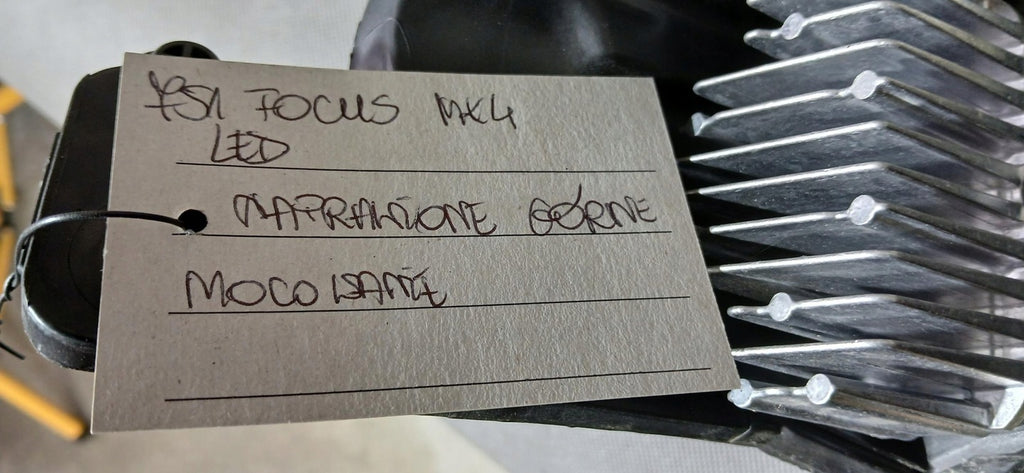 FOCUS MK4
LED
NAPRAWIONE GÓRNE
MOCOWANIE